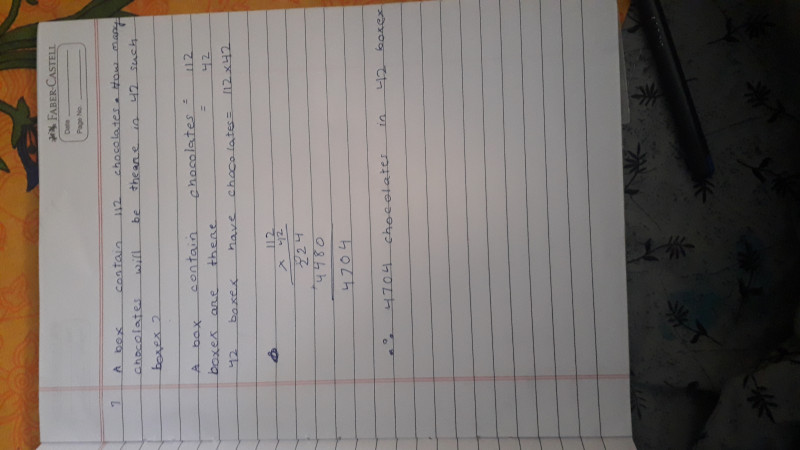 FABER-CASTELL
Date
Page No.
7 A box contain 112 chocolates. How many
chocolates will be there in 42 such
boxes?
A box contain chocolates = 112
boxes are there = 42
42 boxes have chocolates = 112x42
112
x 42
224
+4480
4704
∴ 4704 chocolates in 42 boxes